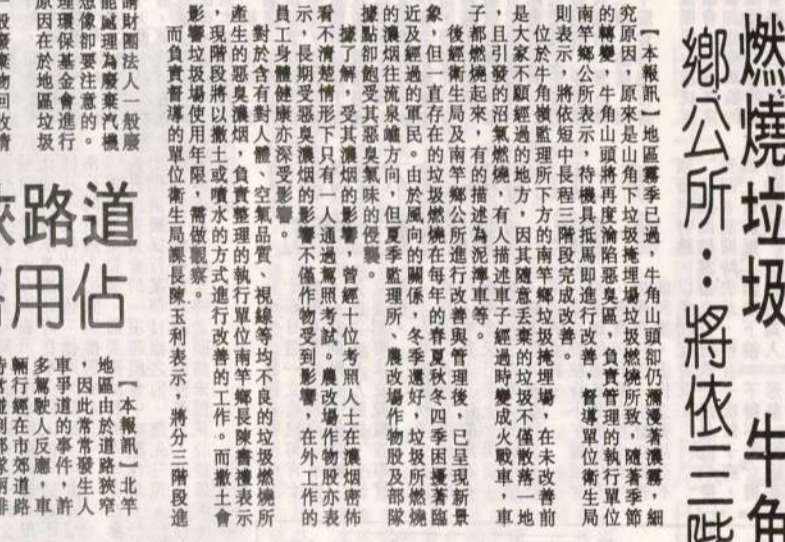 燃燒垃圾　牛角
鄉公所：將依三階
【本報訊】地區霧季已過，牛角山頭卻仍瀰漫著濃霧，細
究原因，原來是山角下垃圾掩埋場垃圾燃燒所致，隨著季節
的轉變，牛角山頭將再度淪陷惡臭區，負責管理的執行單位
南竿鄉公所表示，待機具抵馬即進行改善，督導單位衛生局
則表示，將依短中長程三階段完成改善。
位於牛角嶺監理所下方的南竿鄉垃圾掩埋場，在未改善前
是大家不願經過的地方，因其隨意丟棄的垃圾不僅散落一地
，且引發的沼氣燃燒，有人描述車子經過時變成火戰車，車
子都燃燒起來，有的描述為泥濘車等。
後經衛生局及南竿鄉公所進行改善與管理後，已呈現新景
象，但一直存在的垃圾燃燒在每年的春夏秋冬四季困擾著臨
近及經過的軍民。由於風向的關係，冬季還好，垃圾所燃燒
的濃烟往流泉嶼方向，但夏季監理所、農改場作物股及部隊
據點卻飽受其惡臭氣味的侵襲。
據了解，受其濃烟的影響，曾經十位考照人士在濃烟密佈
看不清楚情形下只有一人通過駕照考試。農改場作物股亦表
示，長期受惡臭濃烟的影響不僅作物受到影響，在外工作的
員工身體健康亦深受影響。
對於含有對人體、空氣品質、視線等均不良的垃圾燃燒所
產生的惡臭濃烟，負責整理的執行單位南竿鄉長陳書禮表示
，現階段將以撒土或噴水的方式進行改善的工作。而撒土會
影響垃圾場使用年限，需做觀察。
而負責督導的單位衛生局課長陳玉利表示，將分三階段進
請財團法人一般廢
能處理為廢棄汽機
想像卻要注意的。
理環保基金會進行
原因在於地區垃圾
一般廢棄物回收清
道路狹
佔用
【本報訊】北竿
地區由於道路狹窄
，因此常常發生人
車爭道的事件，許
多駕駛人反應，車
輛行經在市郊道路
時常碰到部隊兩排